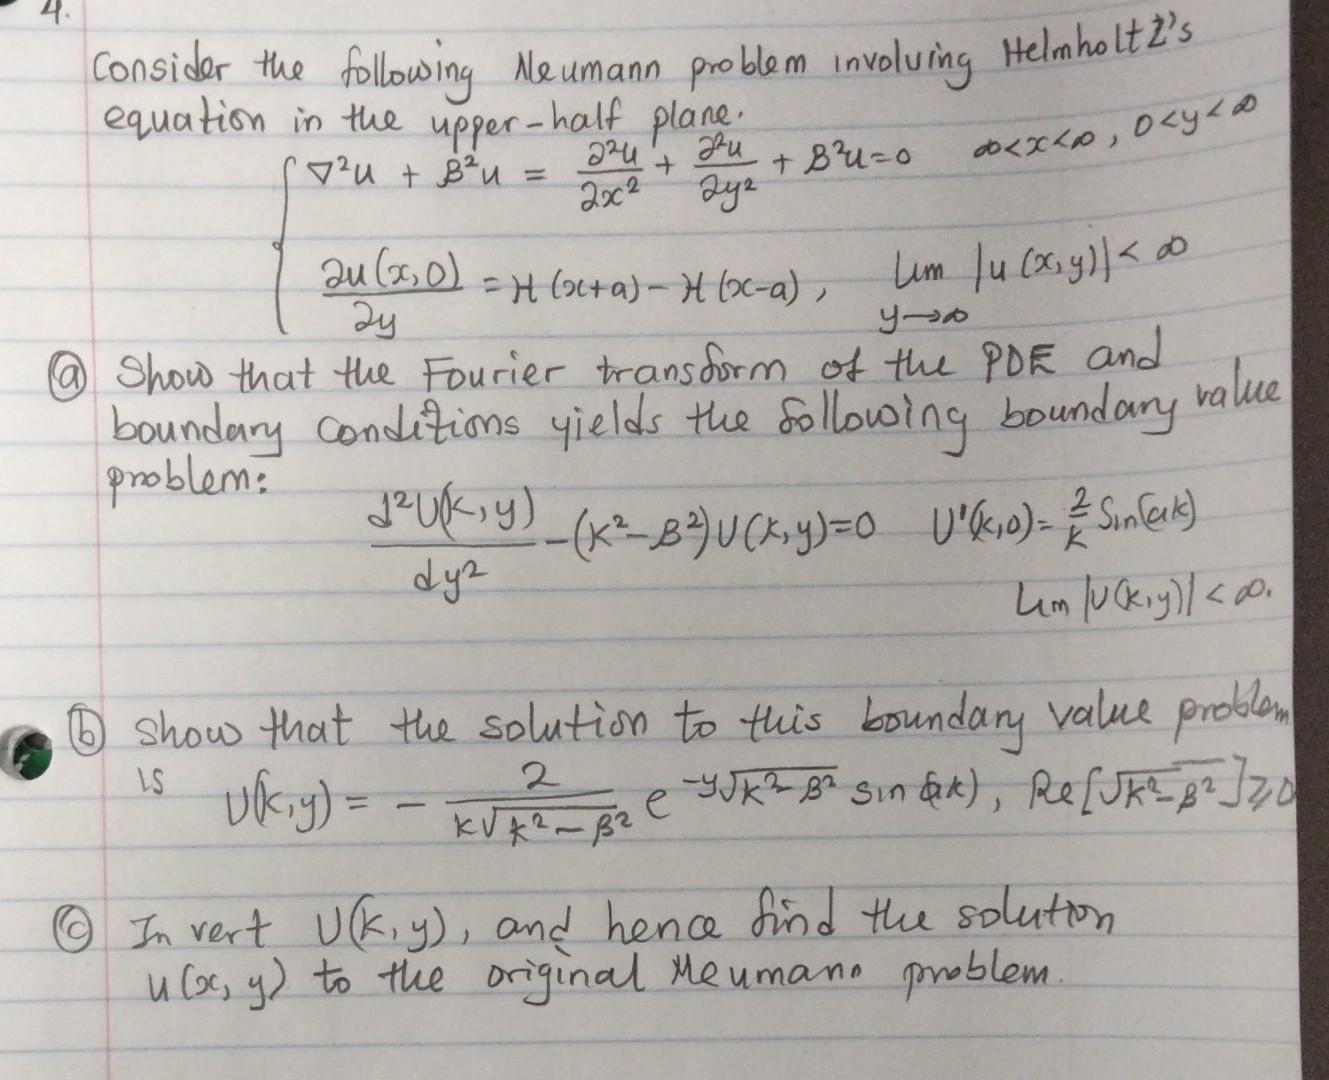 4.
Consider the following Neumann problem involving Helmholtz's
equation in the upper-half plane.
∇²u + β²u = ∂²u/∂x² + ∂²u/∂y² + β²u=0 ∞<x<∞, 0<y<∞
∂u(x,0)/∂y = H(x+a) - H(x-a), lim |u(x,y)| < ∞
y→∞
(a) Show that the Fourier transform of the PDE and
boundary conditions yields the following boundary value
problem:
d²U(k,y)/dy² - (k²-β²)U(k,y)=0 U'(k,0)= 2/k Sin(ak)
Lim |U(k,y)| < ∞.
(b) Show that the solution to this boundary value problem
is U(k,y) = - 2/(k√(k²-β²)) e^(-y√(k²-β²)) sin(ak), Re[√(k²-β²)]≥0
(c) Invert U(k,y), and hence find the solution
u(x,y) to the original Neumann problem.